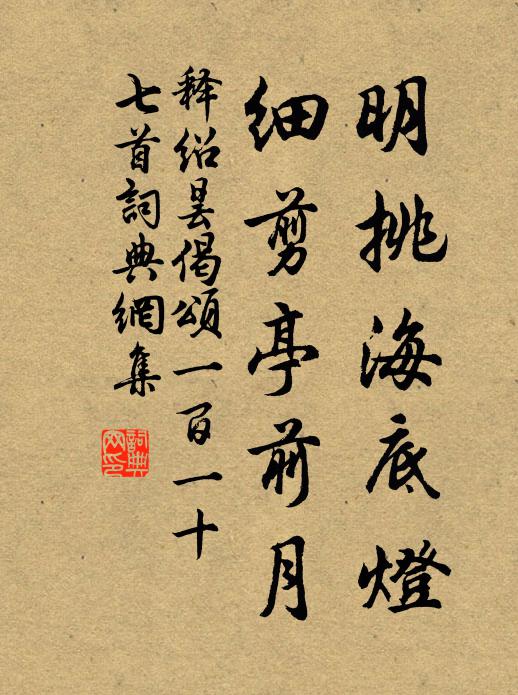 明挑海底燈
細剪亭前月
释紹昙偈頌一百一十
七首詞典網集
詞典网印